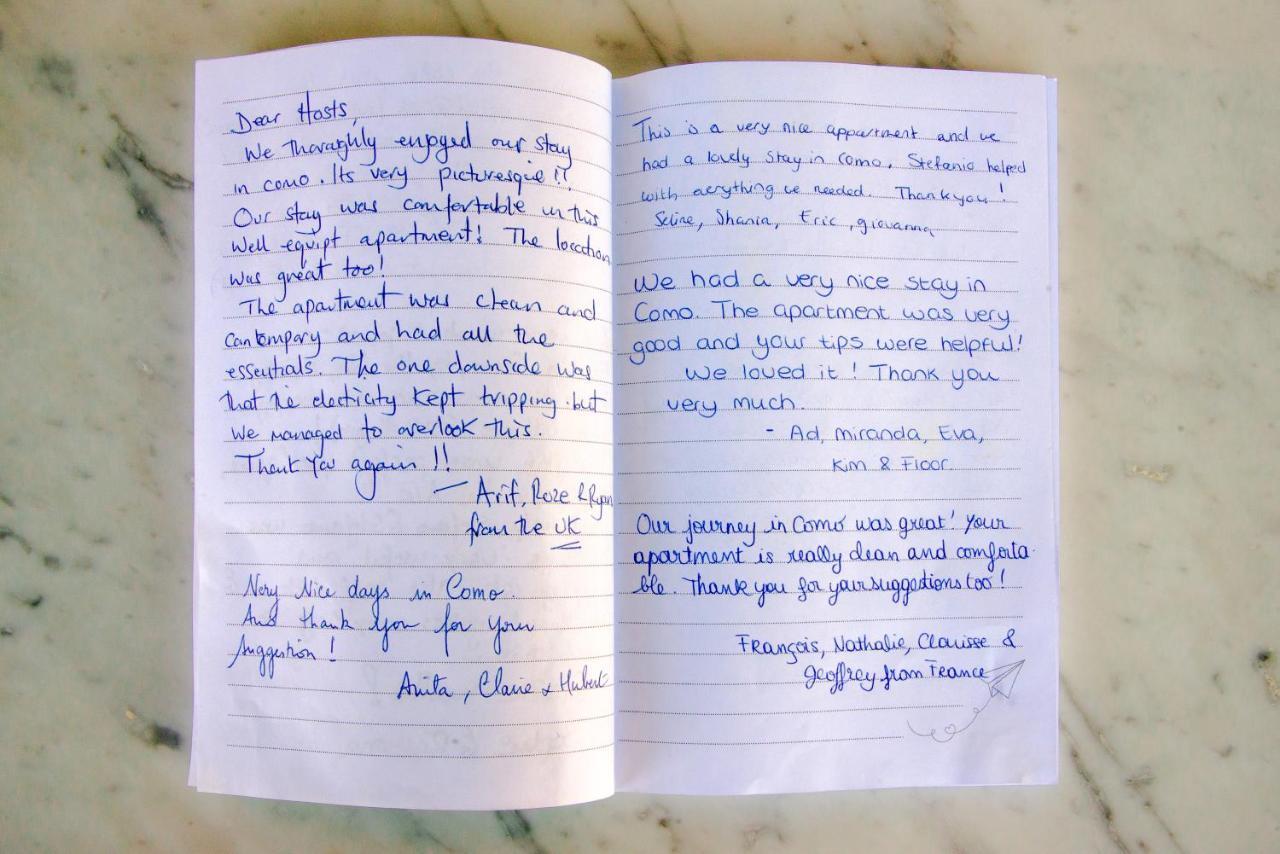 Dear Hosts,
We thoraghly enjoyed our stay
in como. Its very picturesque!!
Our stay was comfortable in this
well equipt apartment! The location
was great too!
The apartment was clean and
contempary and had all the
essentials. The one downside was
that the electicity kept tripping but
we managed to overlook this.
Thank you again!!
— Arif, Roze & Ryan
from the UK
Very Nice days in Como.
And thank you for your
suggestion!
Anita, Claire & Hubert
This is a very nice appartment and we
had a lovely stay in como. Stefania helped
with aerything we needed. Thank you!
Shania, Eric, giovanna
We had a very nice stay in
Como. The apartment was very
good and your tips were helpful!
We loved it! Thank you
very much.
- Ad, miranda, Eva,
Kim & Floor.
Our journey in Como was great! Your
apartment is really clean and comforta
ble. Thank you for your suggestions too!
François, Nathalie, Clouisse &
Geoffrey from France